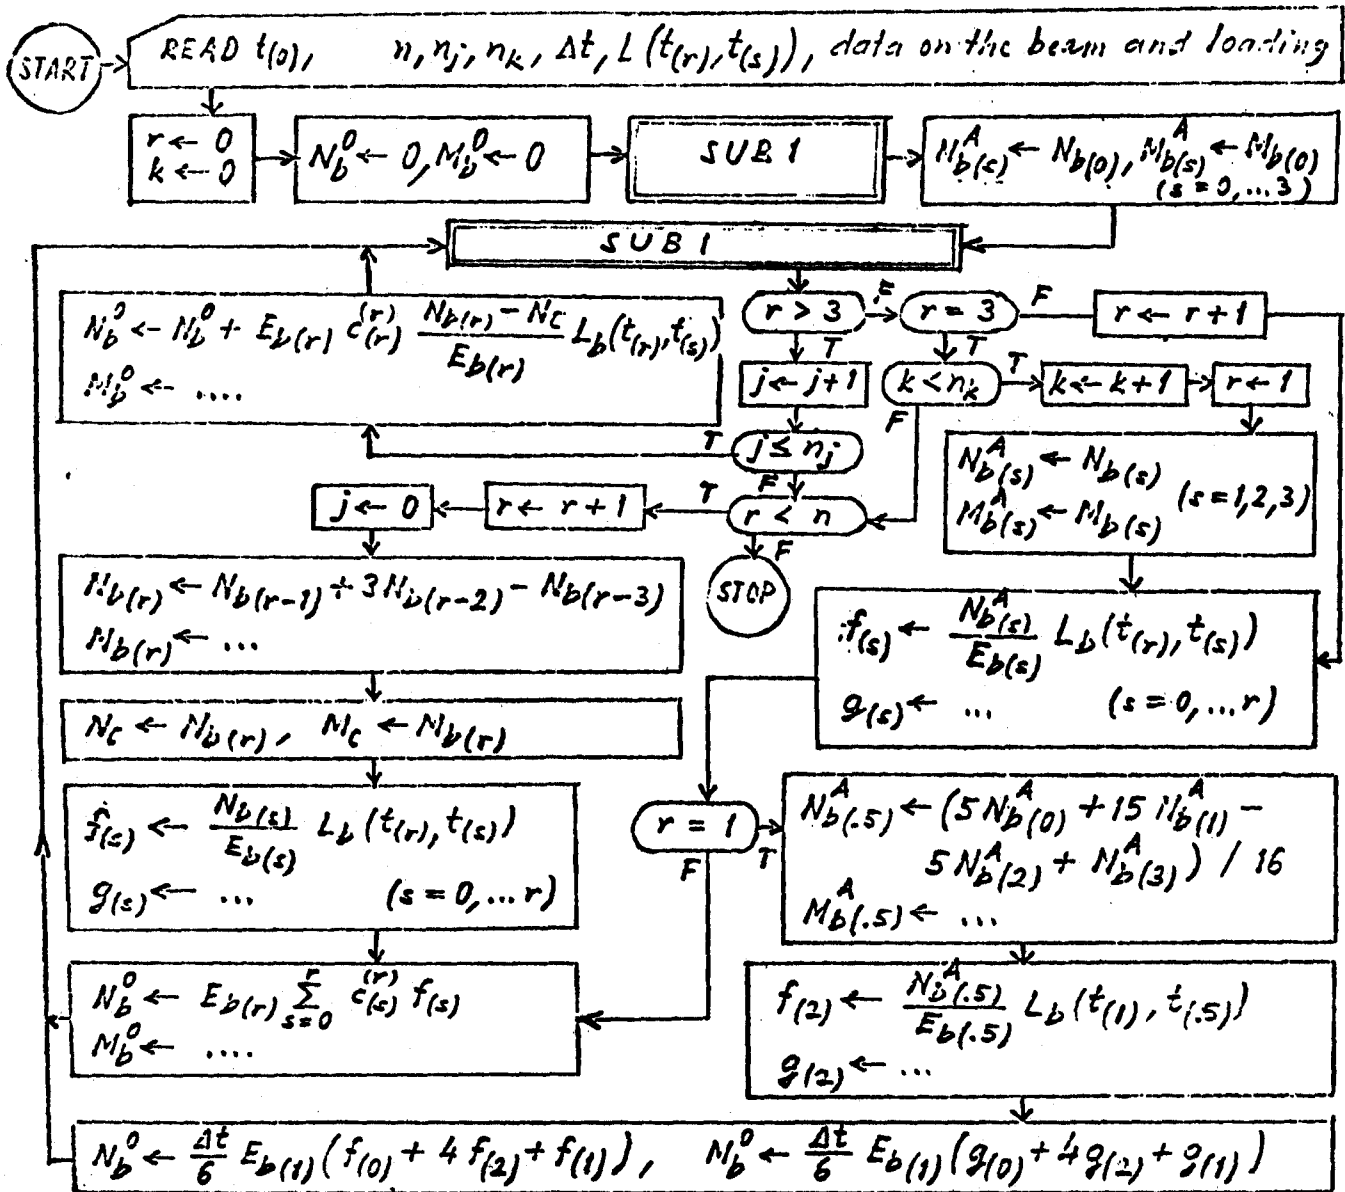 START
READ t(0), n, nj, nk, Δt, L(t(r), t(s)), data on the beam and loading
r ← 0
k ← 0
N_b^0 ← 0, M_b^0 ← 0
SUB 1
N_b(s)^A ← N_b(0), M_b(s)^A ← M_b(0)
(s = 0, ... 3)
SUB 1
N_b^0 ← N_b^0 + E_b(r) c_(r)^(r) (N_b(r) − N_C) / E_b(r) L_b(t(r), t(s))
M_b^0 ← ....
r > 3
F
r = 3
F
r ← r + 1
T
T
j ← j + 1
k < n_k
T
k ← k + 1
r ← 1
F
j ≤ n_j
T
F
N_b(s)^A ← N_b(s)
M_b(s)^A ← M_b(s)
(s = 1, 2, 3)
j ← 0
r ← r + 1
T
r < n
F
STOP
N_b(r) ← N_b(r−1) + 3 N_b(r−2) − N_b(r−3)
M_b(r) ← ...
f(s) ← N_b(s)^A / E_b(s) L_b(t(r), t(s))
g(s) ← ... (s = 0, ... r)
N_C ← N_b(r), M_C ← M_b(r)
f(s) ← N_b(s) / E_b(s) L_b(t(r), t(s))
g(s) ← ... (s = 0, ... r)
r = 1
T
F
N_b(.5)^A ← (5 N_b(0)^A + 15 N_b(1)^A −
5 N_b(2)^A + N_b(3)^A) / 16
M_b(.5)^A ← ...
N_b^0 ← E_b(r) Σ_{s=0}^{r} c_(s)^(r) f(s)
M_b^0 ← ....
f(2) ← N_b(.5)^A / E_b(.5) L_b(t(1), t(.5))
g(2) ← ...
N_b^0 ← Δt/6 E_b(1) (f(0) + 4 f(2) + f(1)), M_b^0 ← Δt/6 E_b(1) (g(0) + 4 g(2) + g(1))